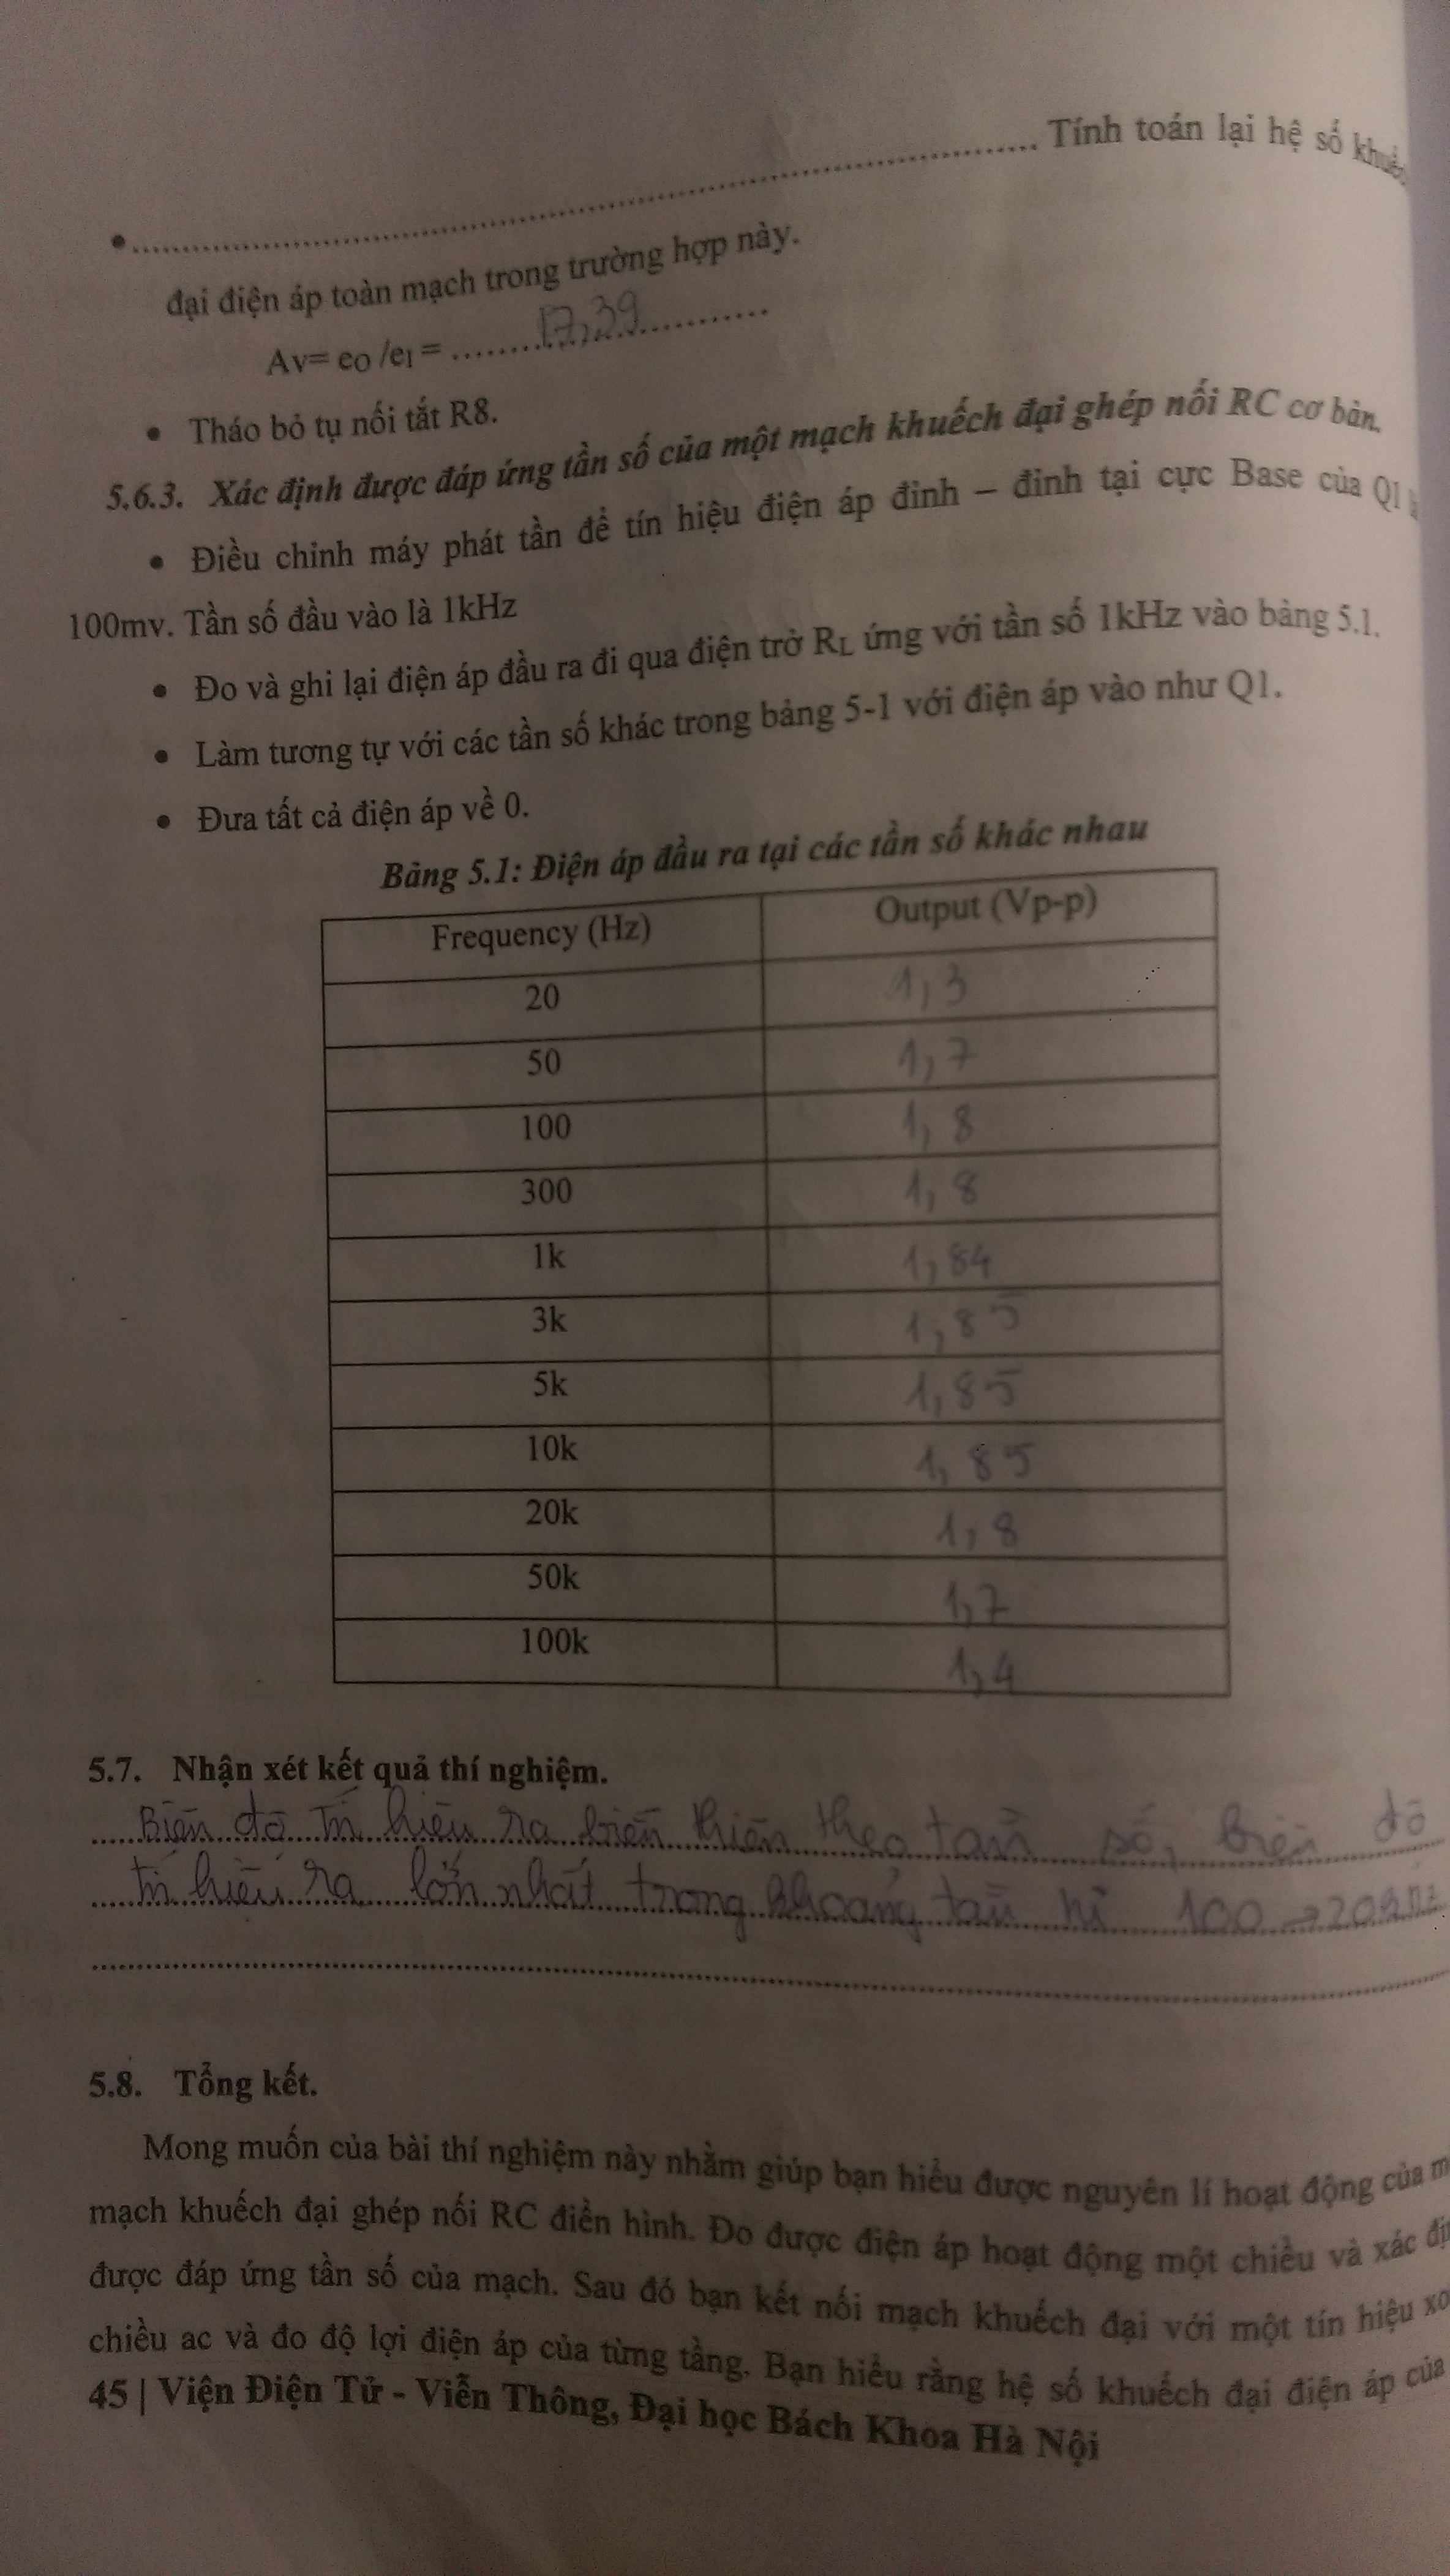 •.................................................. Tính toán lại hệ số khuếc
đại điện áp toàn mạch trong trường hợp này.
Av= eO /eI = ..........17,39..............
• Tháo bỏ tụ nối tắt R8.
5.6.3. Xác định được đáp ứng tần số của một mạch khuếch đại ghép nối RC cơ bản.
• Điều chỉnh máy phát tần để tín hiệu điện áp đỉnh – đỉnh tại cực Base của Q1
100mv. Tần số đầu vào là 1kHz
• Đo và ghi lại điện áp đầu ra đi qua điện trở RL ứng với tần số 1kHz vào bảng 5.1.
• Làm tương tự với các tần số khác trong bảng 5-1 với điện áp vào như Q1.
• Đưa tất cả điện áp về 0.
Bảng 5.1: Điện áp đầu ra tại các tần số khác nhau
Frequency (Hz) Output (Vp-p)
20 1,3
50 1,7
100 1,8
300 1,8
1k 1,84
3k 1,85
5k 1,85
10k 1,85
20k 1,8
50k 1,7
100k 1,4
5.7. Nhận xét kết quả thí nghiệm.
Biên độ tín hiệu ra biến thiên theo tần số, biên độ
tín hiệu ra lớn nhất trong khoảng tần số 100 → 20kHz
5.8. Tổng kết.
Mong muốn của bài thí nghiệm này nhằm giúp bạn hiểu được nguyên lí hoạt động của m
mạch khuếch đại ghép nối RC điển hình. Đo được điện áp hoạt động một chiều và xác địn
được đáp ứng tần số của mạch. Sau đó bạn kết nối mạch khuếch đại với một tín hiệu xo
chiều ac và đo độ lợi điện áp của từng tầng. Bạn hiểu rằng hệ số khuếch đại điện áp của
45 | Viện Điện Tử - Viễn Thông, Đại học Bách Khoa Hà Nội